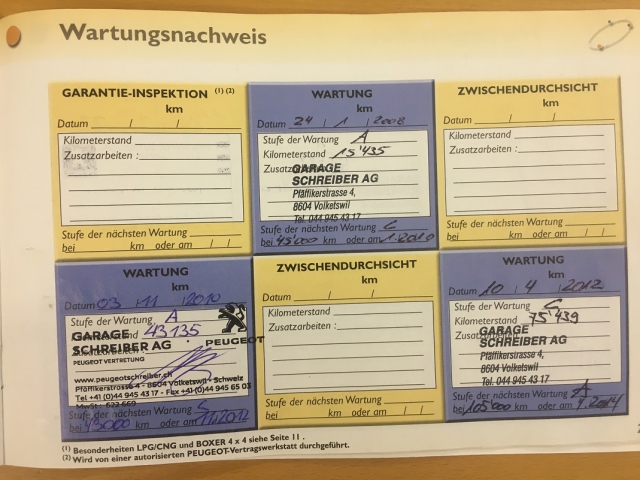 Wartungsnachweis
GARANTIE-INSPEKTION (1) (2)
km
Datum / /
Kilometerstand
Zusatzarbeiten :
Stufe der nächsten Wartung
bei km oder am / /
WARTUNG
km
Datum 24 / 1 / 2008
Stufe der Wartung A
Kilometerstand 15'435
GARAGE
SCHREIBER AG
Pfäffikerstrasse 4,
8604 Volketswil
Tel. 044 945 43 17
Stufe der nächsten Wartung C
bei 45'000 km oder am 1.2010
ZWISCHENDURCHSICHT
km
Datum / /
Kilometerstand
Zusatzarbeiten :
Stufe der nächsten Wartung
bei km oder am / /
WARTUNG
km
Datum 03 / 11 / 2010
Stufe der Wartung A
Kilometerstand 43135
GARAGE
SCHREIBER AG
PEUGEOT
PEUGEOT VERTRETUNG
www.peugeotschreiber.ch
Pfäffikerstrasse 4 - 8604 Volketswil - Schweiz
Tel +41 (0)44 945 43 17 - Fax +41 (0)44 945 65 03
Stufe der nächsten Wartung
km oder am 11.2012
ZWISCHENDURCHSICHT
km
Datum / /
Kilometerstand
Zusatzarbeiten :
Stufe der nächsten Wartung
bei km oder am / /
WARTUNG
km
Datum 10 / 4 / 2012
Stufe der Wartung C
Kilometerstand 75'439
GARAGE
SCHREIBER AG
Pfäffikerstrasse 4,
8604 Volketswil
Tel. 044 945 43 17
Stufe der nächsten Wartung A
bei 105'000 km oder am 4.2014
(1) Besonderheiten LPG/CNG und BOXER 4 x 4 siehe Seite 11 .
(2) Wird von einer autorisierten PEUGEOT-Vertragswerkstatt durchgeführt.